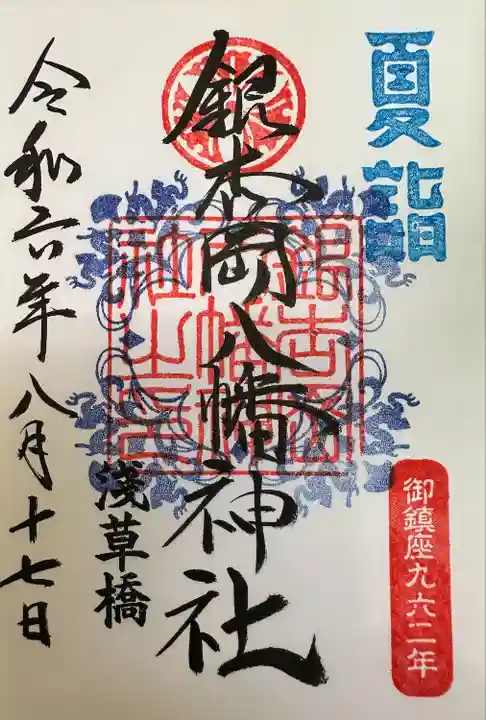 夏詣
御鎮座九六二年
銀杏岡八幡神社
銀杏岡
八幡神
社之印
浅草橋
令和六年八月十七日